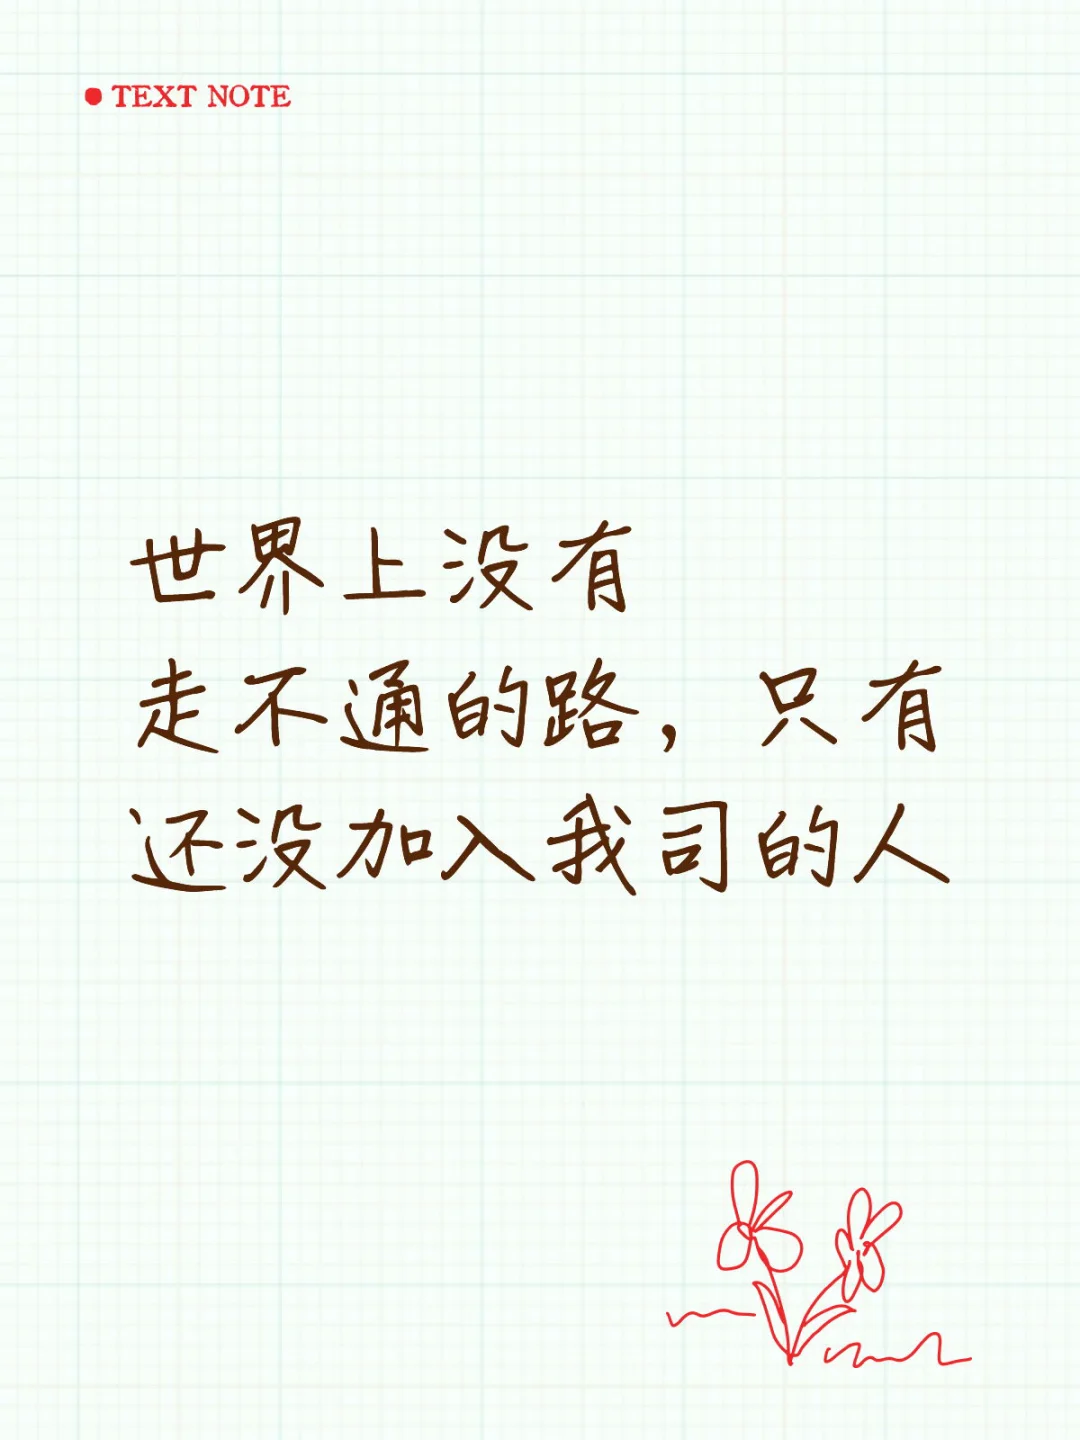 TEXT NOTE
世界上没有
走不通的路，只有
还没加入我司的人